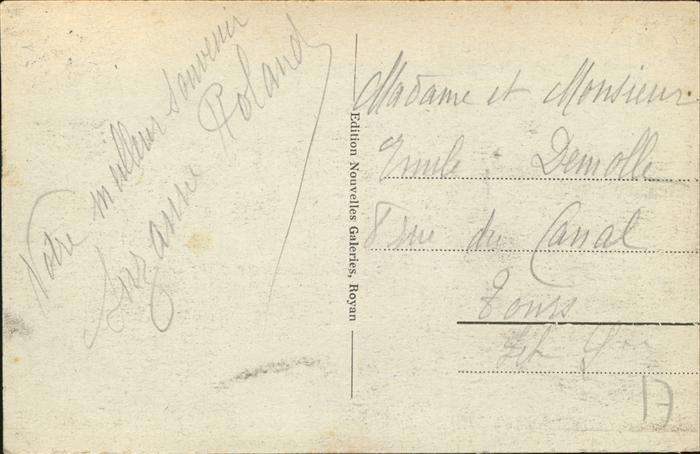 Notre meilleur souvenir
Suzanne Roland
Edition Nouvelles Galeries, Royan
Madame et Monsieur
Emile Demolle
rue du Canal
Tours
17